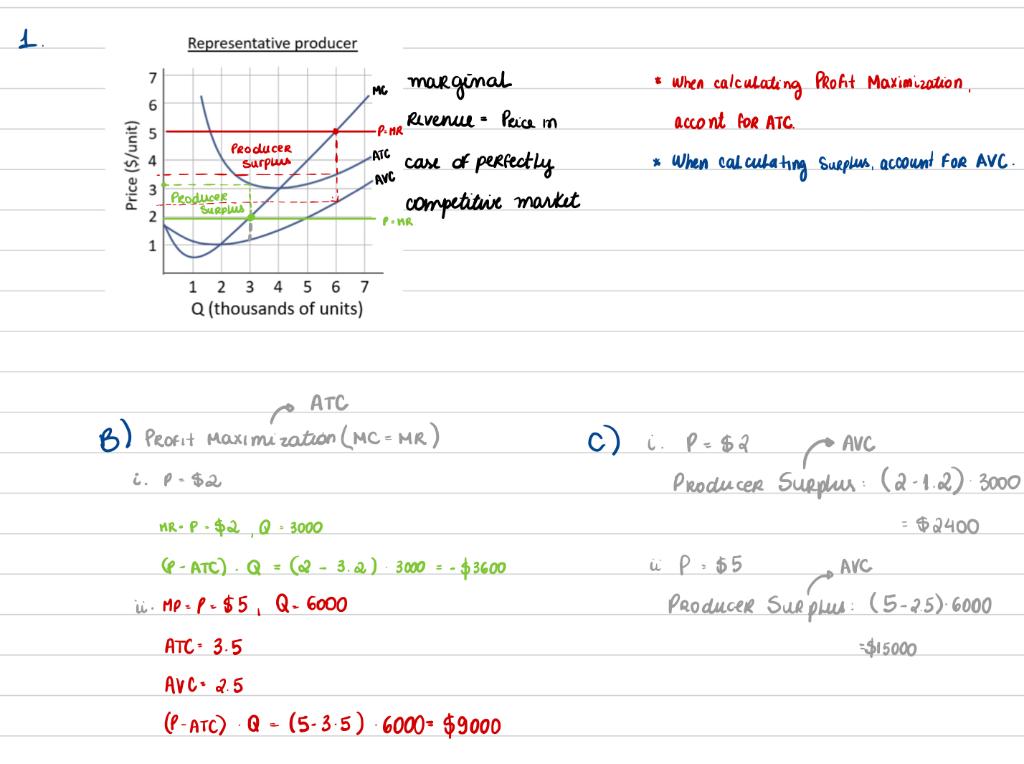 1.
Representative producer
Price ($/unit)
7
6
5
4
3
2
1
1 2 3 4 5 6 7
Q (thousands of units)
MC
P=MR
ATC
AVC
P=MR
PRODUCER
SURPLUS
PRODUCER
SURPLUS
marginal
Revenue = Price in
case of perfectly
competitive market
* When calculating Profit Maximization,
accont for ATC.
* When calculating Surplus, account for AVC.
ATC
B) Profit Maximization (MC = MR)
i. P = $2
MR = P = $2, Q = 3000
(P - ATC) · Q = (2 - 3.2) · 3000 = -$3600
ii. MP = P = $5, Q = 6000
ATC = 3.5
AVC = 2.5
(P-ATC) · Q = (5-3.5) · 6000 = $9000
C) i. P = $2
AVC
Producer Surplus: (2-1.2) · 3000
= $2400
ii P = $5
AVC
Producer Surplus: (5-2.5) · 6000
=$15000